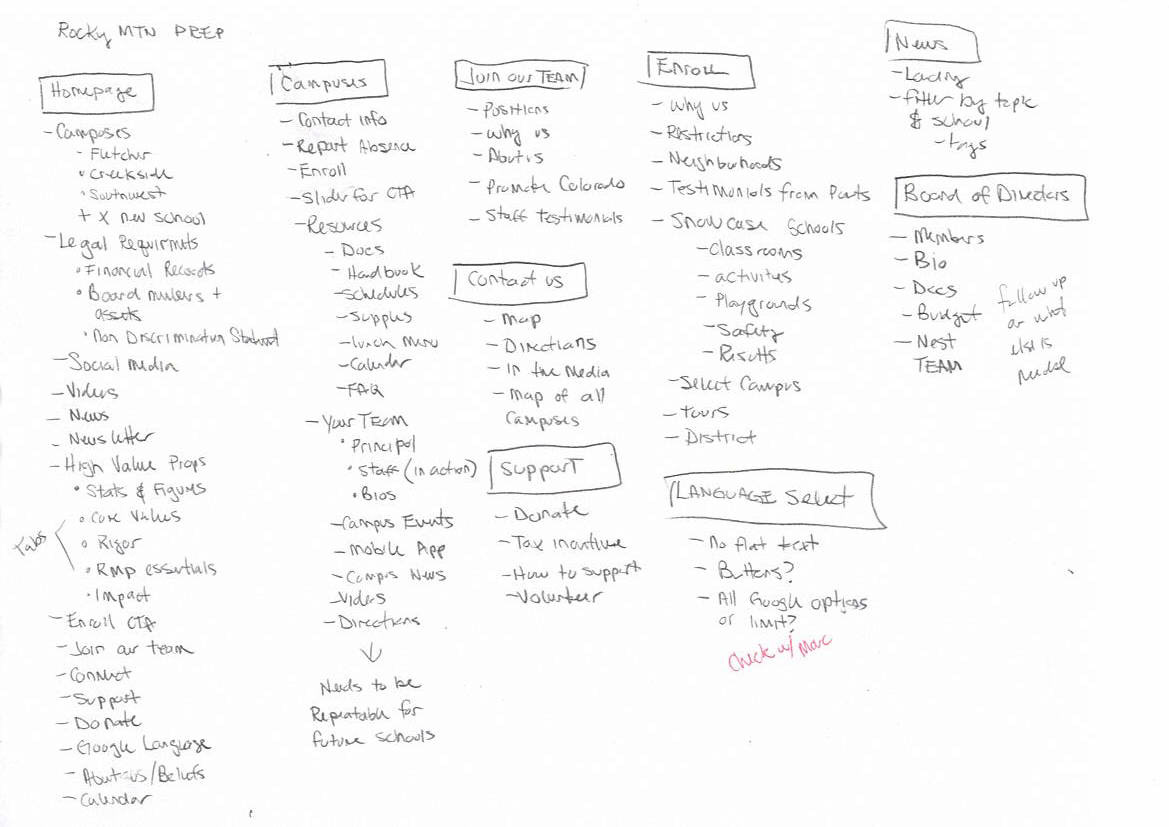 Rocky MTN PREP
Homepage
- Campuses
- Fletcher
• Creekside
• Southwest
+ X new school
- Legal Requirmnts
• Financial Records
• Board mmbers +
assets
• Non Discrimination Statment
- Social media
- Videos
- News
- Newsletter
- High Value Props
• Stats & Figures
Tabs
• Core Values
• Rigor
• RMP essentials
• Impact
- Enroll CTA
- Join our team
- Connect
- Support
- Donate
- Google Language
- About us/Beliefs
- Calendar
Campuses
- Contact info
- Report Absence
- Enroll
- Slider for CTA
- Resources
- Docs
- Handbook
- Schedules
- Supplies
- Lunch Menu
- Calendar
- FAQ
- Your TEAM
• Principal
• Staff (in action)
• Bios
- Campus Events
- Mobile App
- Campus News
- Videos
- Directions
↓
Needs to be
Repeatable for
future schools
Join our TEAM
- Positions
- Why us
- About us
- Promote Colorado
- Staff testimonials
Contact us
- Map
- Directions
- In the Media
- Map of all
Campuses
Support
- Donate
- Tax incentive
- How to support
- Volunteer
Enroll
- Why us
- Restrictions
- Neighborhoods
- Testimonials from Parts
- Showcase Schools
- Classrooms
- activities
- Playgrounds
- Safety
- Results
- Select Campus
- Tours
- District
LANGUAGE Select
- No flat text
- Buttons?
- All Google options
or limit?
Check w/ Marc
News
- Landing
- filter by topic
& school
- tags
Board of Directors
- Members
- Bio
- Docs
- Budget
- Nest
TEAM
follow up
on what
else is
needed